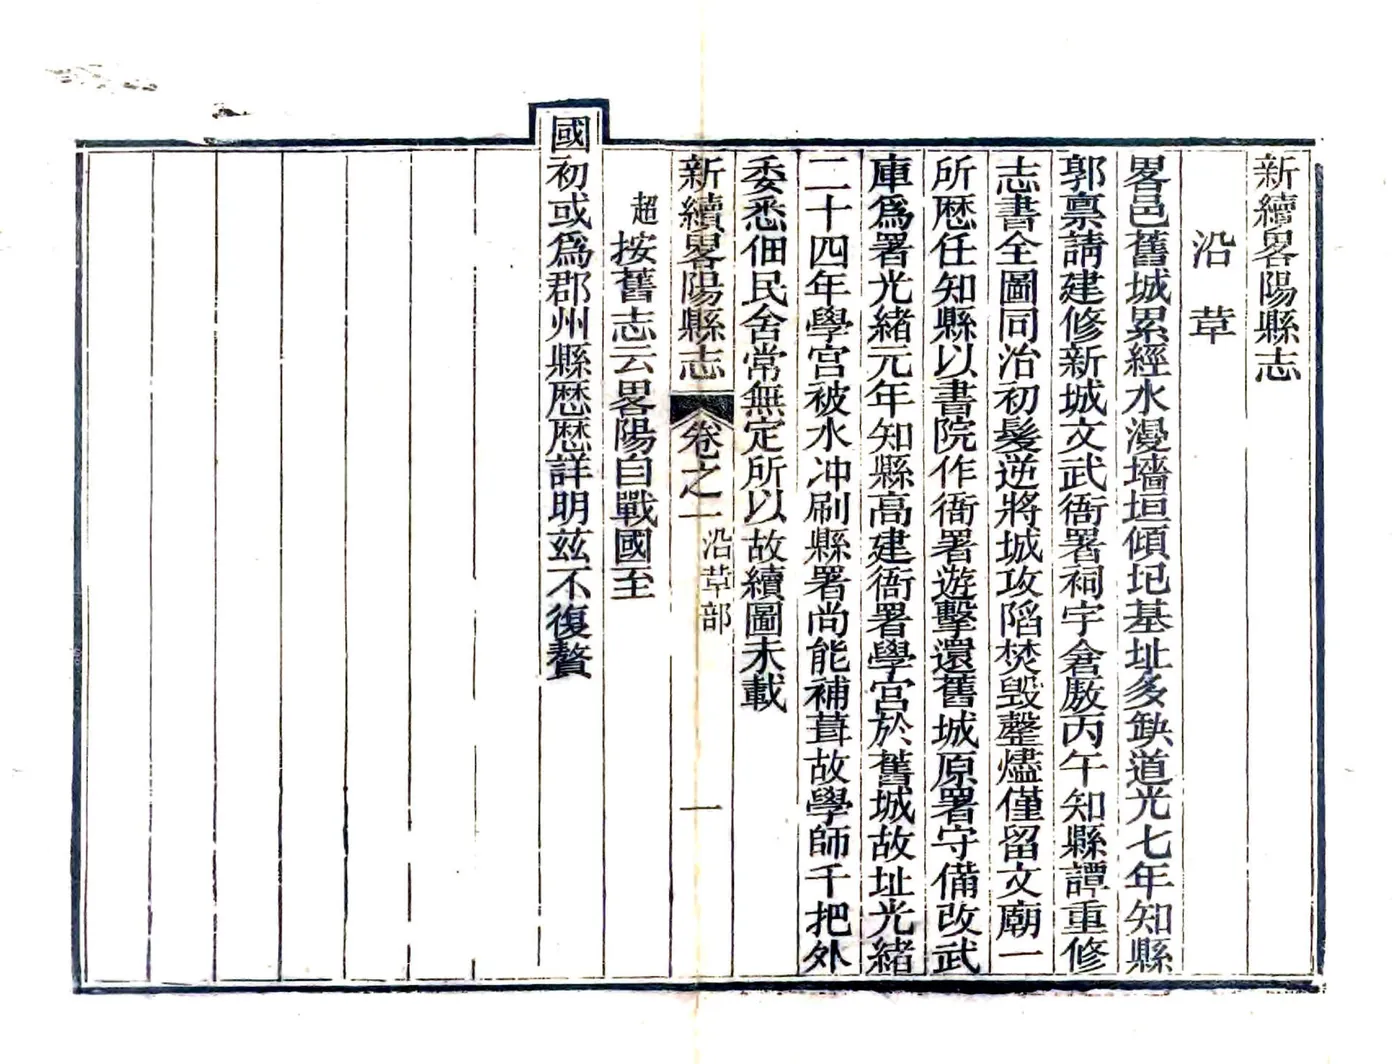 新續畧陽縣志
沿革
畧邑舊城累經水漫墻垣傾圮基址多缺道光七年知縣
郭禀請建修新城文武衙署祠宇倉廒丙午知縣譚重修
志書全圖同治初髮逆將城攻陷焚毁罄燼僅留文廟一
所歴任知縣以書院作衙署遊擊還舊城原署守備改武
庫爲署光緒元年知縣高建衙署學宫於舊城故址光緒
二十四年學宫被水冲刷縣署尚能補葺故學師千把外
委悉佃民舍常無定所以故續圖未載
新續畧陽縣志 卷之一 沿革部 一
超按舊志云畧陽自戰國至
國初或爲郡州縣歴歴詳明兹不復贅